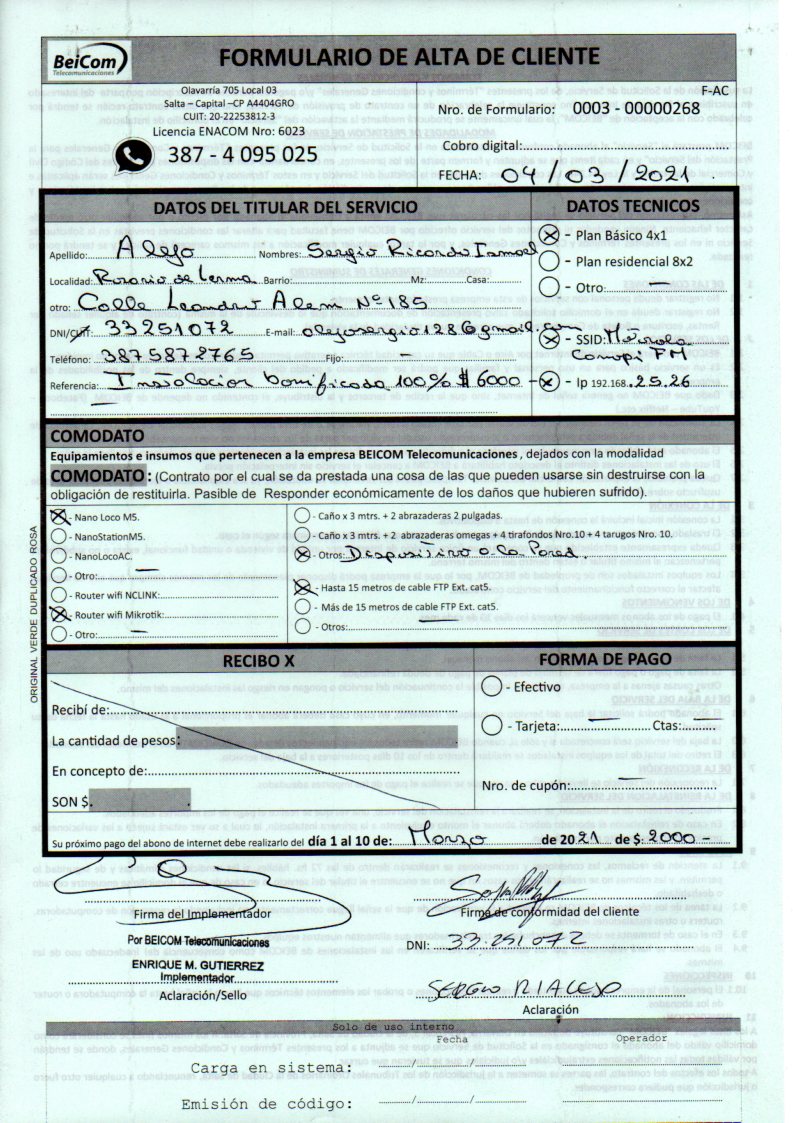 BeiCom
Telecomunicaciones
FORMULARIO DE ALTA DE CLIENTE
Olavarría 705 Local 03
Salta – Capital –CP A4404GRO
CUIT: 20-22253812-3
Licencia ENACOM Nro: 6023
387 - 4 095 025
F-AC
Nro. de Formulario: 0003 - 00000268
Cobro digital:
FECHA: 04 / 03 / 2021
DATOS DEL TITULAR DEL SERVICIO
Apellido: Alejo Nombres: Sergio Ricardo Ismael
Localidad: Rosario de Lerma Barrio: Mz: Casa:
otro: Calle Leandro Alem Nº 185
DNI/CUIT: 33251072 E-mail: alejosergio128@gmail.com
Teléfono: 3875872765 Fijo: —
Referencia: Instalacion bonificada 100% $ 6000 –
—
DATOS TECNICOS
- Plan Básico 4x1
- Plan residencial 8x2
- Otro: —
- SSID: Metrola
Campi FM
- Ip 192.168. 25.26
COMODATO
Equipamientos e insumos que pertenecen a la empresa BEICOM Telecomunicaciones, dejados con la modalidad
COMODATO: (Contrato por el cual se da prestada una cosa de las que pueden usarse sin destruirse con la
obligación de restituirla. Pasible de Responder económicamente de los daños que hubieren sufrido).
- Nano Loco M5.
- NanoStationM5.
- NanoLocoAC.
- Otro: —
- Router wifi NCLINK:
- Router wifi Mikrotik:
- Otro: —
- Caño x 3 mtrs. + 2 abrazaderas 2 pulgadas.
- Caño x 3 mtrs. + 2 abrazaderas omegas + 4 tirafondos Nro.10 + 4 tarugos Nro. 10.
- Otros: Dispositivo a la Pared.
- Hasta 15 metros de cable FTP Ext. cat5.
- Más de 15 metros de cable FTP Ext. cat5.
- Otros: —
ORIGINAL VERDE DUPLICADO ROSA
RECIBO X
Recibí de:
La cantidad de pesos:
En concepto de:
SON $.
FORMA DE PAGO
- Efectivo
- Tarjeta: — Ctas: —
Nro. de cupón: —
Su próximo pago del abono de internet debe realizarlo del día 1 al 10 de: Marzo de 2021 de $: 2000 –
Firma del Implementador
Por BEICOM Telecomunicaciones
ENRIQUE M. GUTIERREZ
Implementador
Aclaración/Sello
Firma de conformidad del cliente
DNI: 33.251 072
SERGIO RIALEJO
Aclaración
Solo de uso interno
Fecha Operador
Carga en sistema: / /
Emisión de código: / /